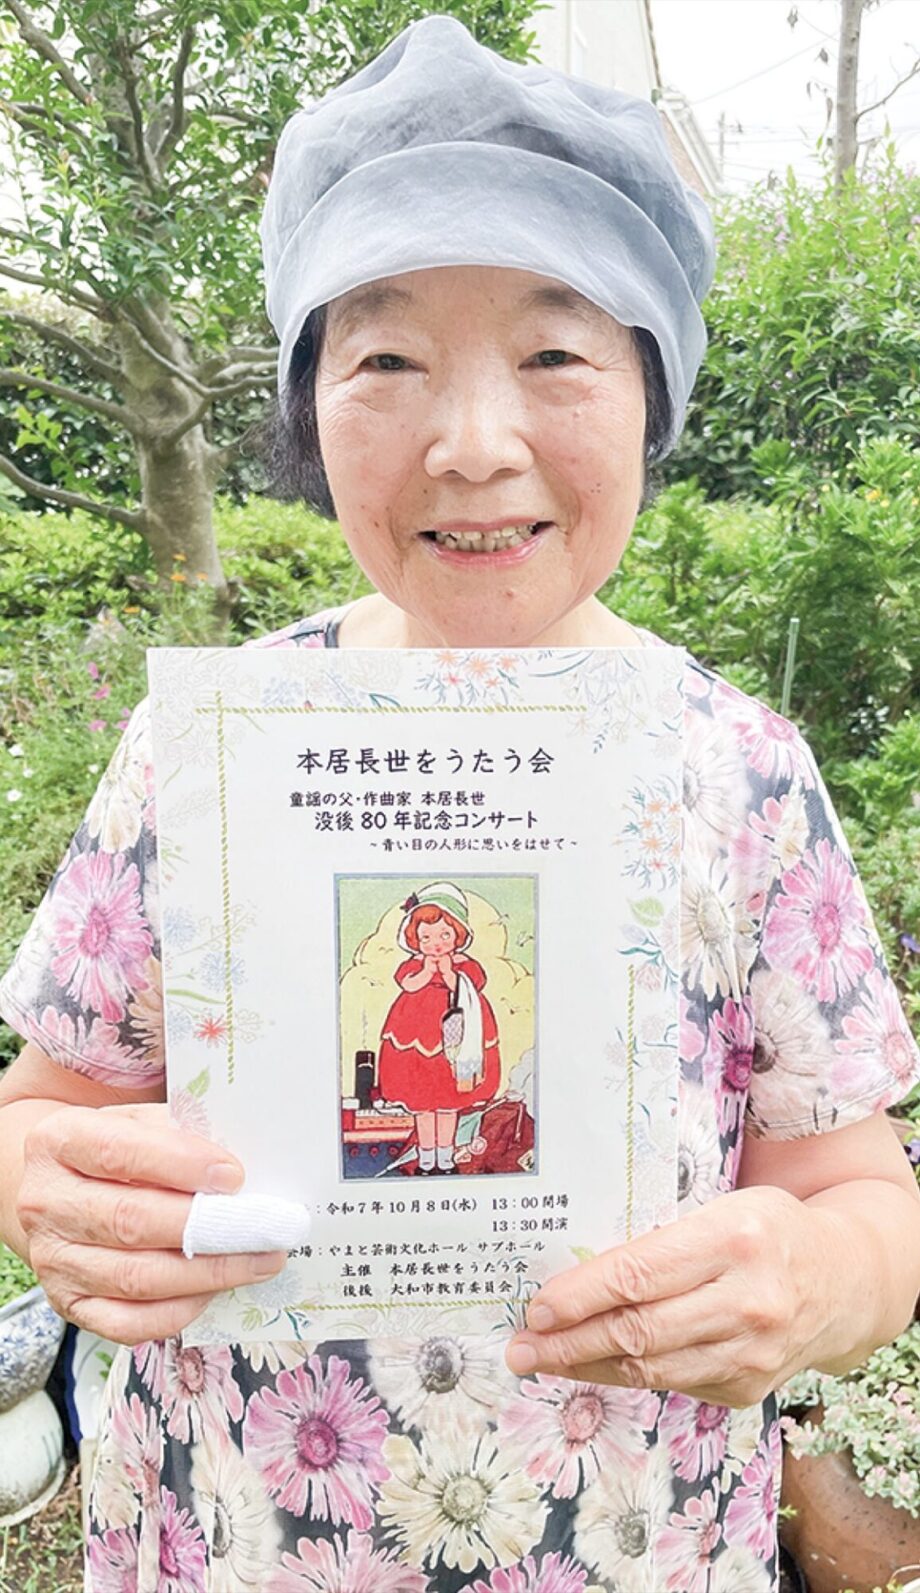 本居長世をうたう会
童謡の父・作曲家 本居長世
没後 80 年記念コンサート
~青い目の人形に思いをはせて~
:令和7年10月8日(水) 13:00開場
13:30開演
会場:やまと芸術文化ホール サブホール
主催 本居長世をうたう会
後援 大和市教育委員会